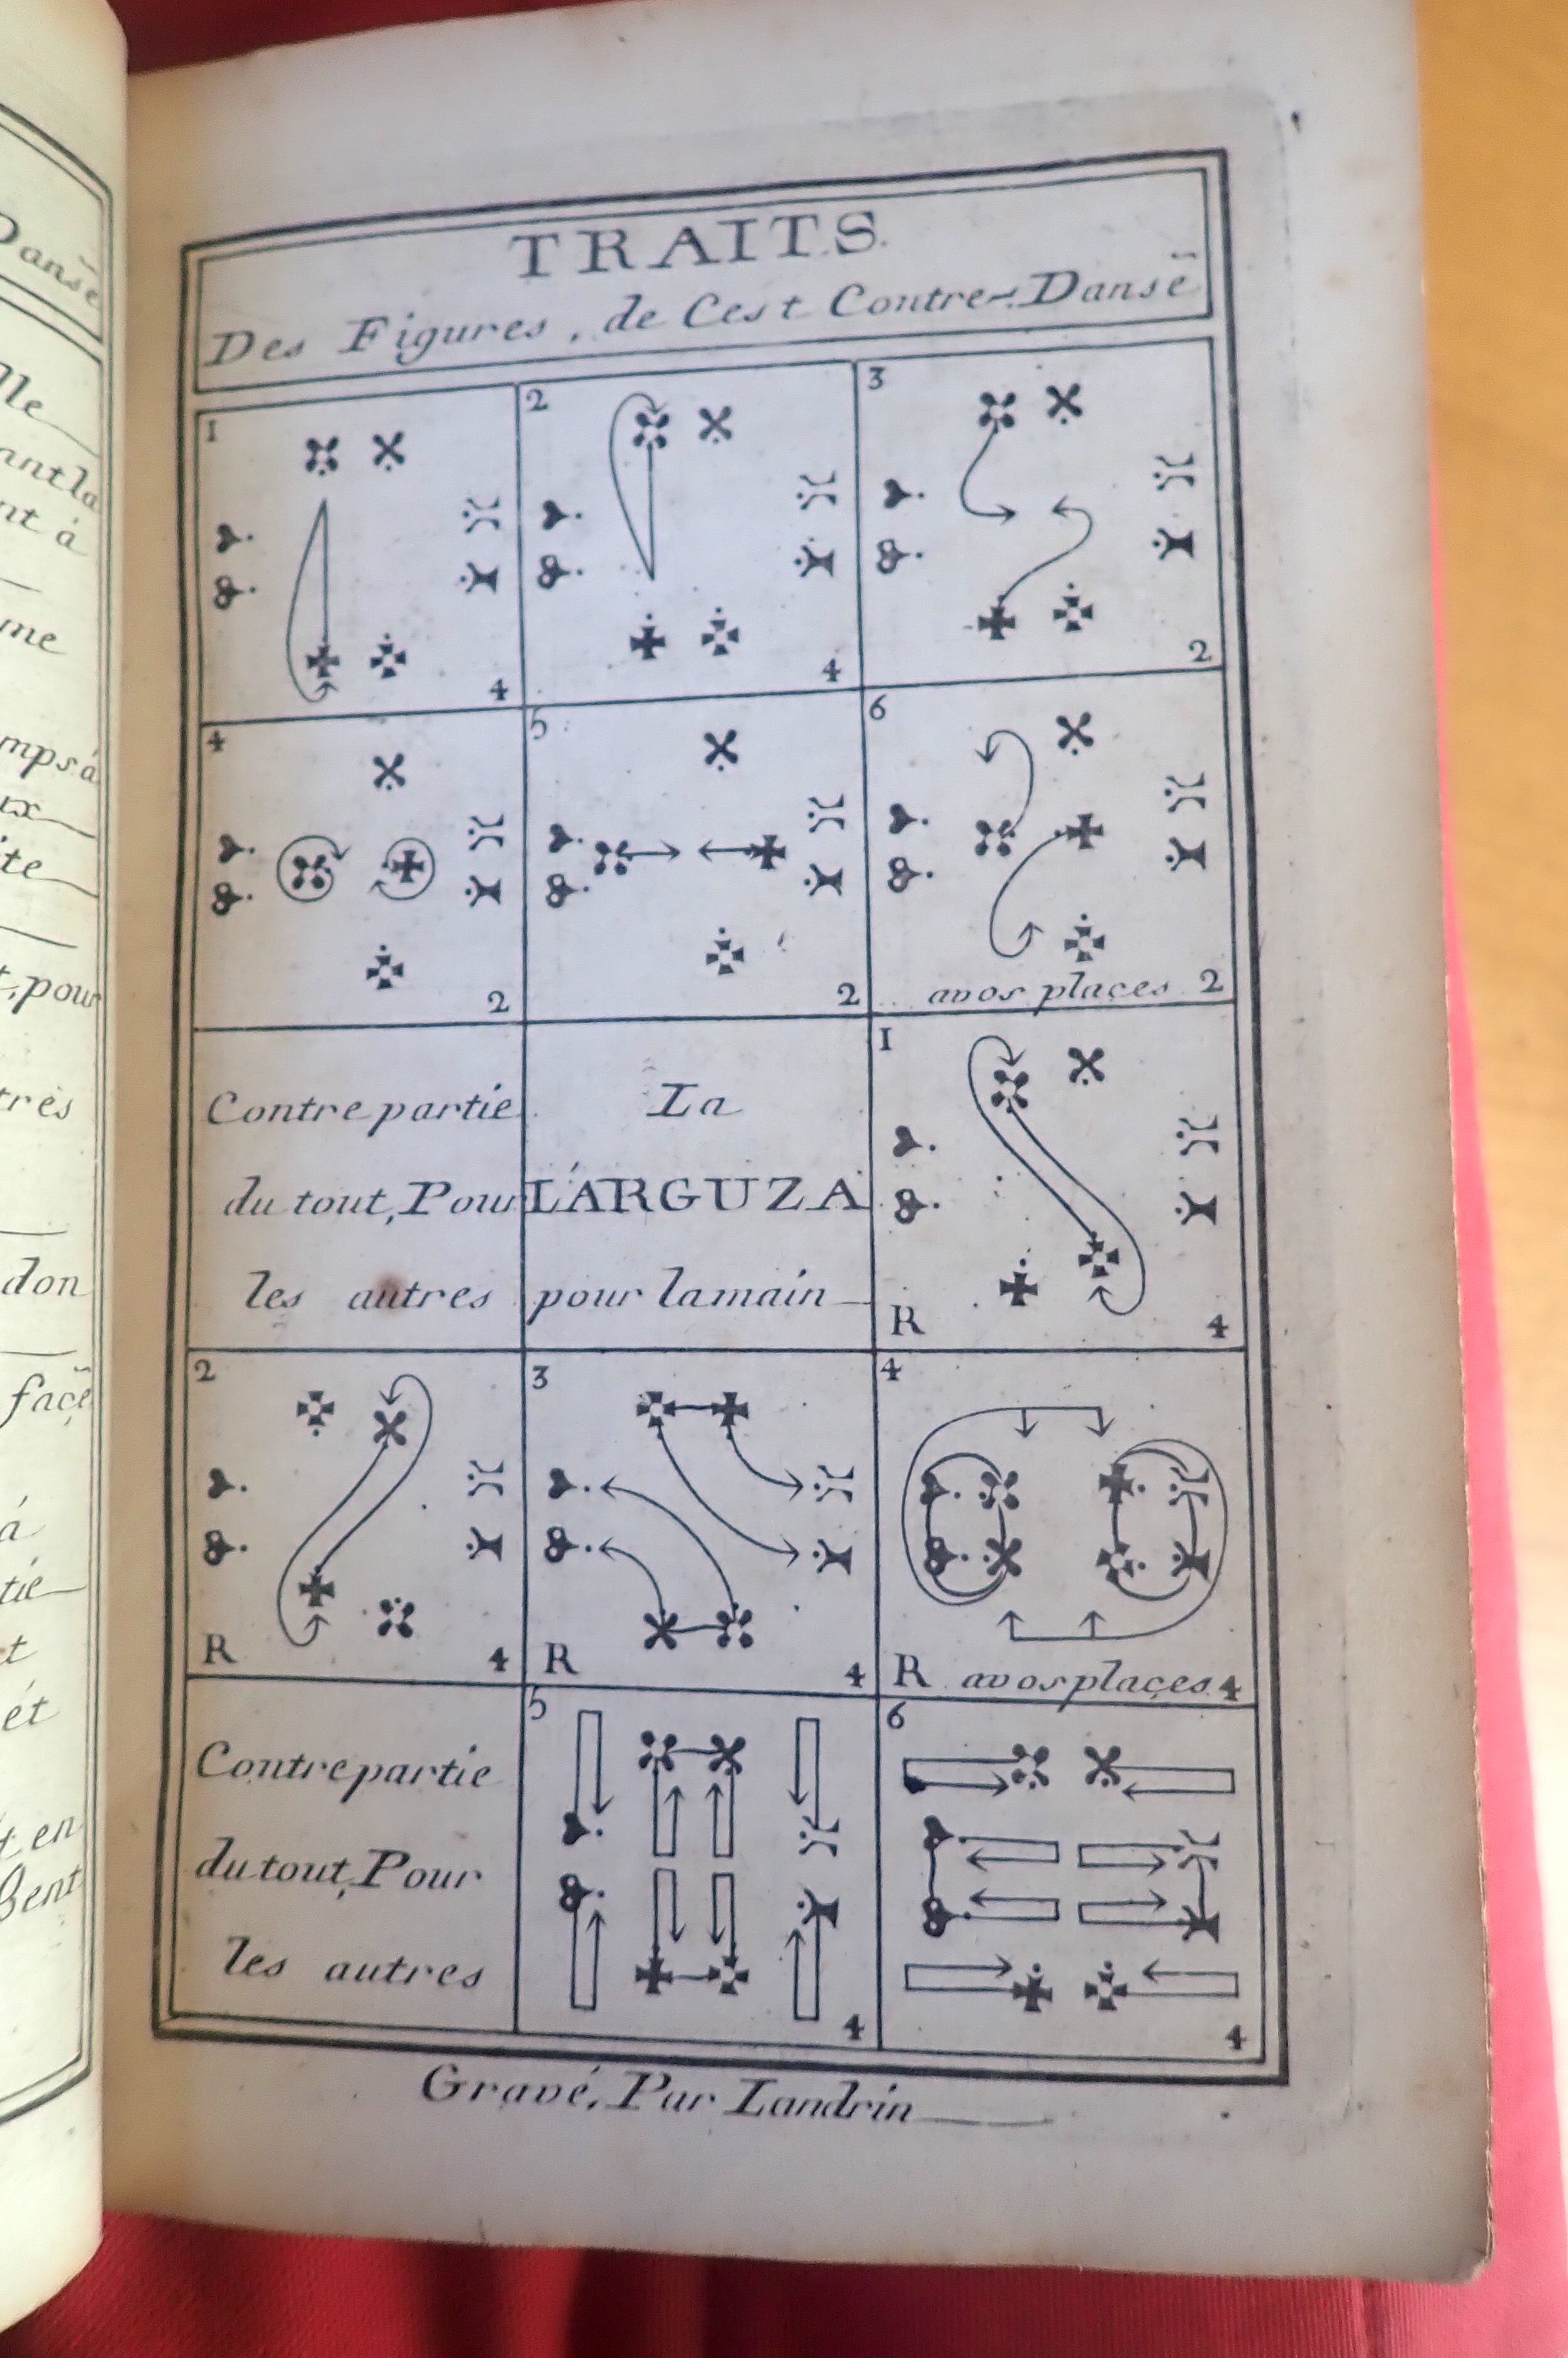 Danse
lle
ant la
nt à
me
mps à
ux
ite
t, pour
très
don
face
à
tie
t
ét
t en
TRAITS.
Des Figures, de Cest Contre-Danse
1
4
2
4
3
2
4
2
5
2
6
avos places 2
Contre partie
du tout, Pour
les autres
La
L'ARGUZA
pour lamain
1
R 4
2
R 4
3
R 4
4
R avos places 4
Contrepartie
du tout, Pour
les autres
5
4
6
4
Gravé, Par Landrin